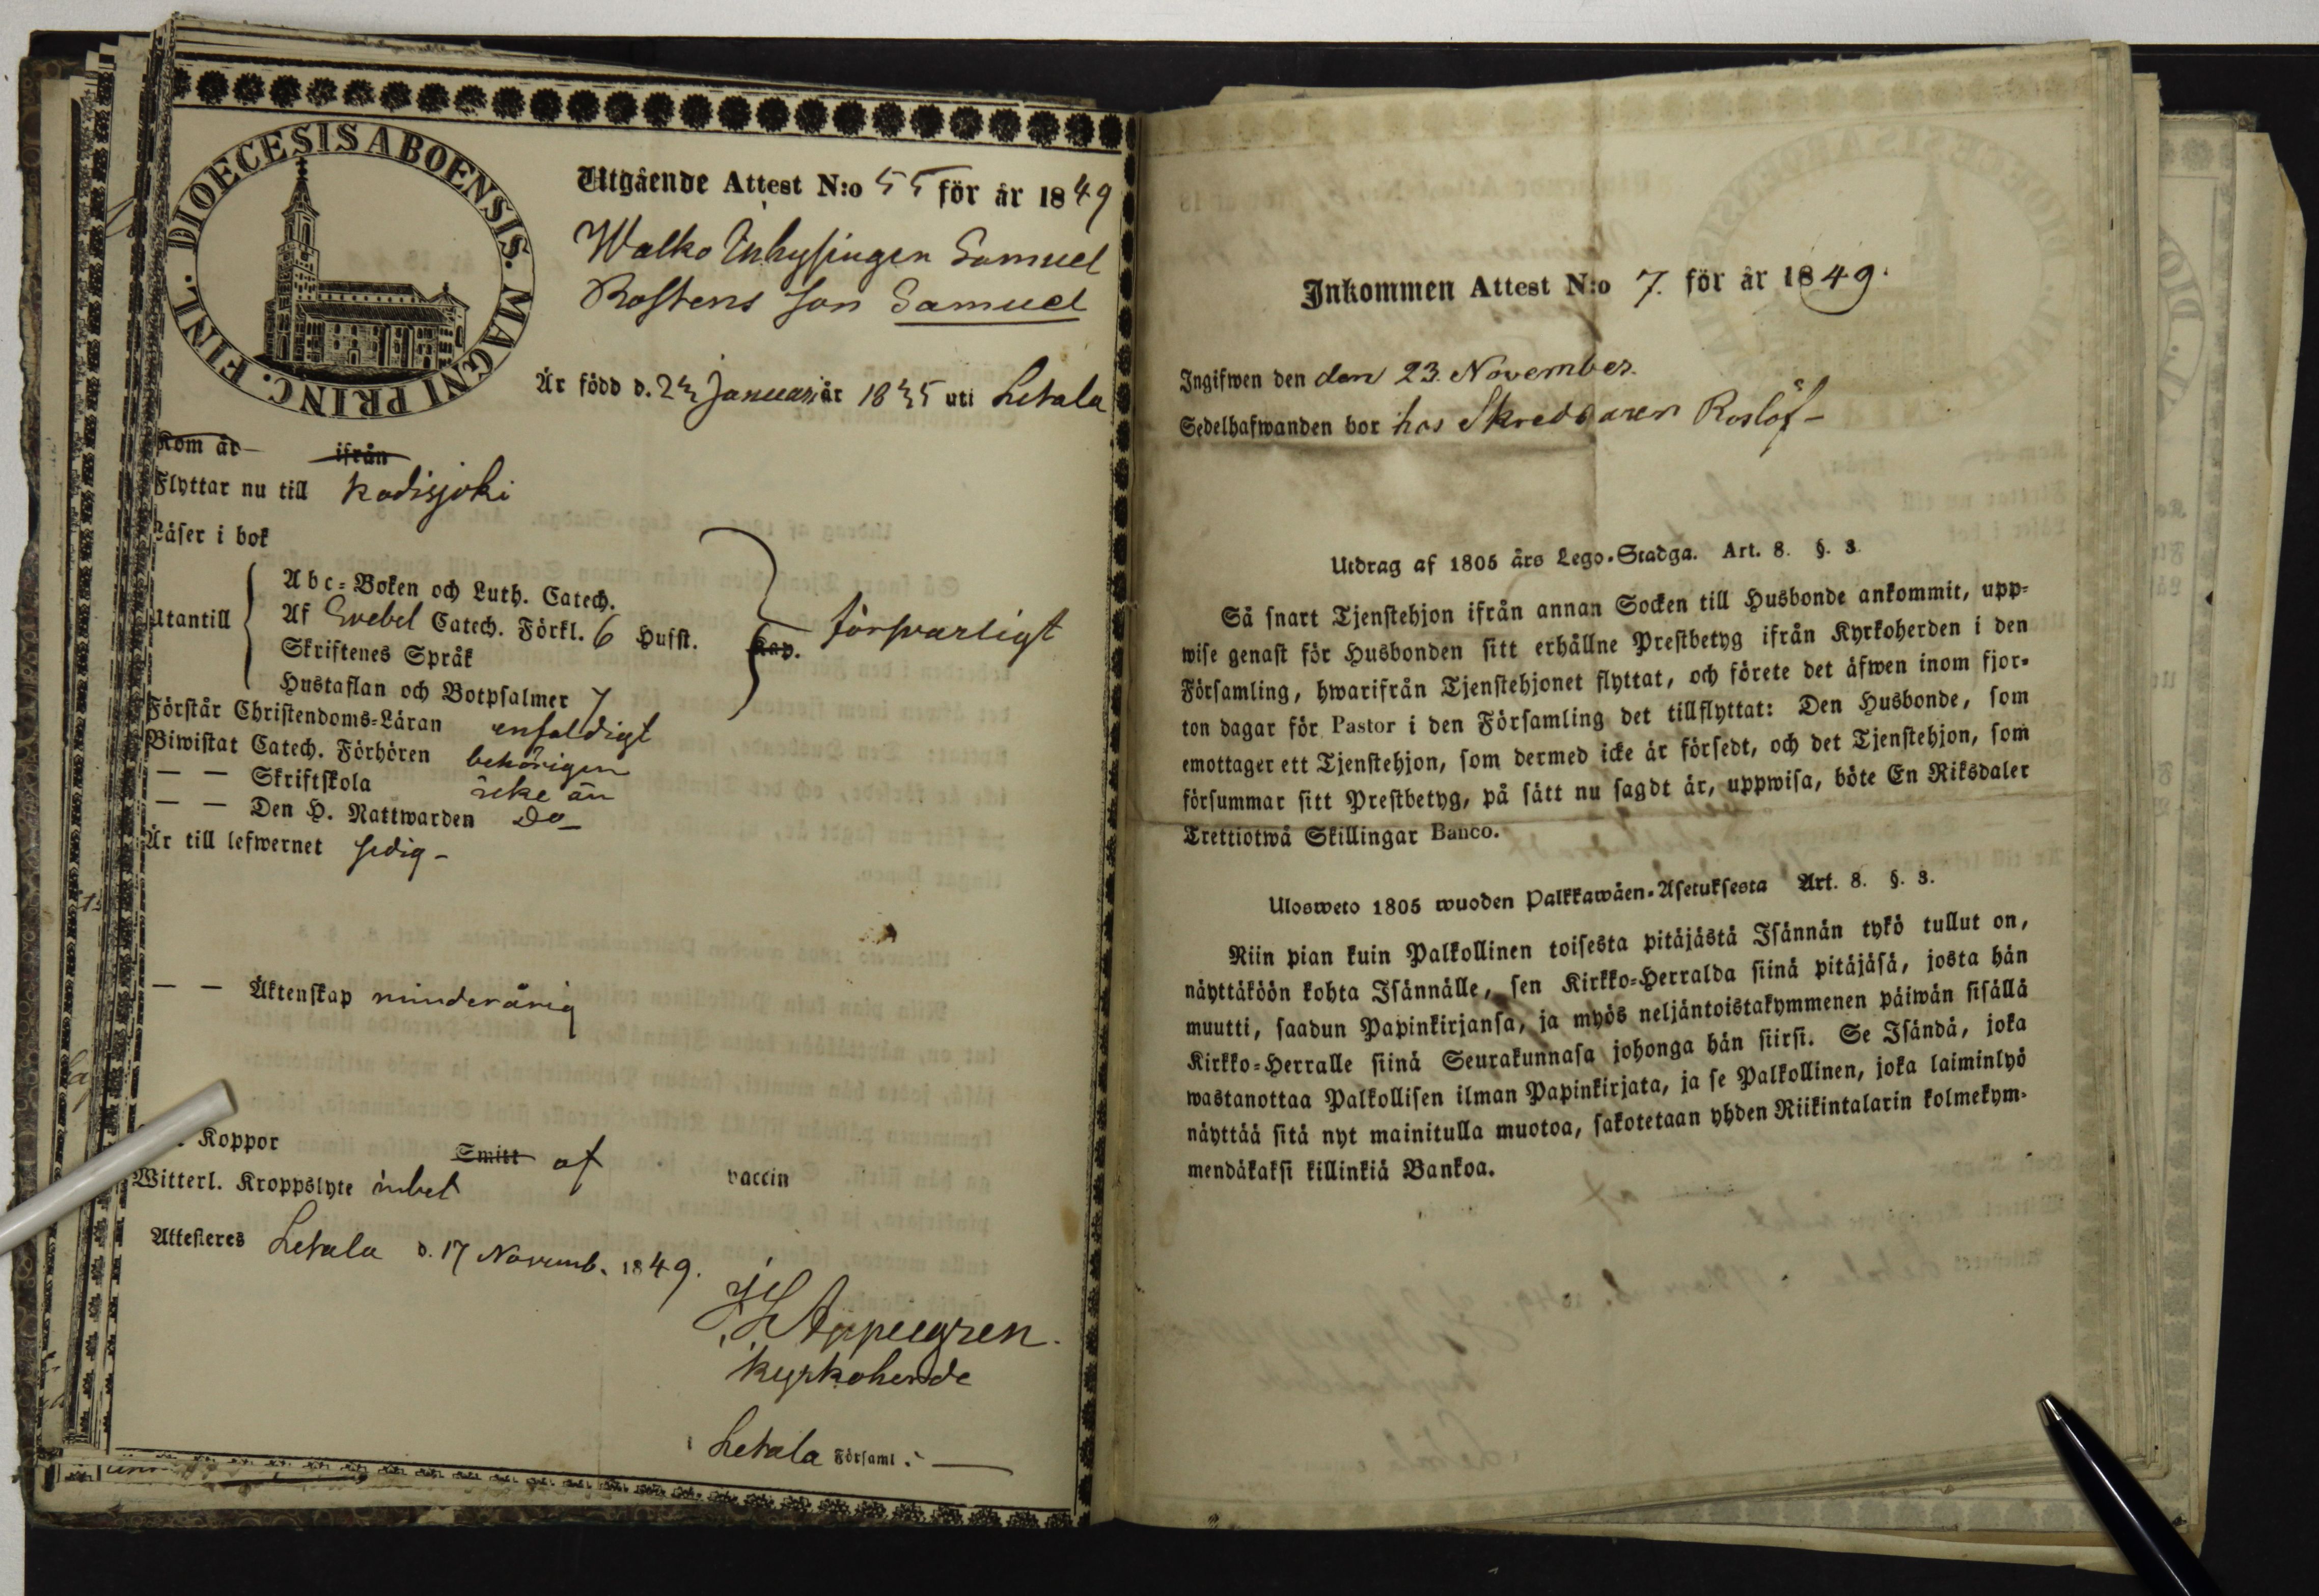 DIOECESIS ABOENSIS. MAGNI PRINC. FINL.
Utgående Attest N:o 55 för år 1849
Walko Inhysingen Samuel
Rostens son Samuel
Är född d. 23 Januari år 1835 uti Letala
Kom år — ifrån
Flyttar nu till Kodisjoki
Läser i bok
Utantill
Abc-Boken och Luth. Catech.
Af Svebel Catech. Förkl. 6 Hufst. Kap. försvarligt
Skriftenes Språk
Hustaflan och Botpsalmer 7
Förstår Christendoms-Läran enfaldigt
Biwistat Catech. Förhören behörigen
— — Skriftskola icke än
— — Den H. Nattwarden Do
Är till lefwernet sedig –
— — Äktenskap minderårig
Koppor Smitt af vaccin
Witterl. Kroppslyte intet
Attesteres Letala d. 17 Novemb. 1849.
Appelgren.
Kyrkoherde
i Letala Församl.
Inkommen Attest N:o 7. för år 1849.
Ingifwen den den 23. November.
Sedelhafwanden bor hos Skreddaren Roslöf –
Utdrag af 1805 års Lego-Stadga. Art. 8. §. 3.
Så snart Tjenstehjon ifrån annan Socken till Husbonde ankommit, upp-
wise genast för Husbonden sitt erhållne Prestbetyg ifrån Kyrkoherden i den
Församling, hwarifrån Tjenstehjonet flyttat, och förete det äfwen inom fjor-
ton dagar för Pastor i den Församling det tillflyttat: Den Husbonde, som
emottager ett Tjenstehjon, som dermed icke är försedt, och det Tjenstehjon, som
försummar sitt Prestbetyg, på sätt nu sagdt är, uppwisa, böte En Riksdaler
Trettiotwå Skillingar Banco.
Ulosweto 1805 wuoden Palkkawäen-Asetuksesta Art. 8. §. 3.
Niin pian kuin Palkollinen toisesta pitäjästä Isännän tykö tullut on,
näyttäköön kohta Isännälle, sen Kirkko-Herralda siinä pitäjäsä, josta hän
muutti, saadun Papinkirjansa, ja myös neljäntoistakymmenen päiwän sisällä
Kirkko-Herralle siinä Seurakunnasa johonga hän siirsi. Se Isändä, joka
wastanottaa Palkollisen ilman Papinkirjata, ja se Palkollinen, joka laiminlyö
näyttää sitä nyt mainitulla muotoa, sakotetaan yhden Riikintalarin kolmekym-
mendäkaksi killinkiä Bankoa.